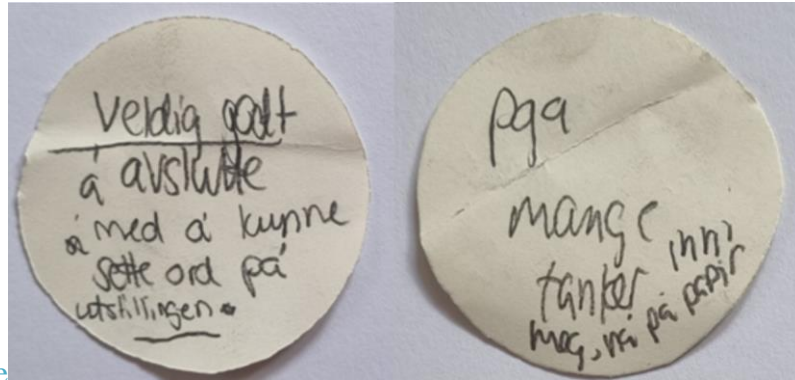 veldig godt
å avslutte
å med å kunne
sette ord på
utstillingen.
pga
mange
tanker inni
meg, nå på papir
e